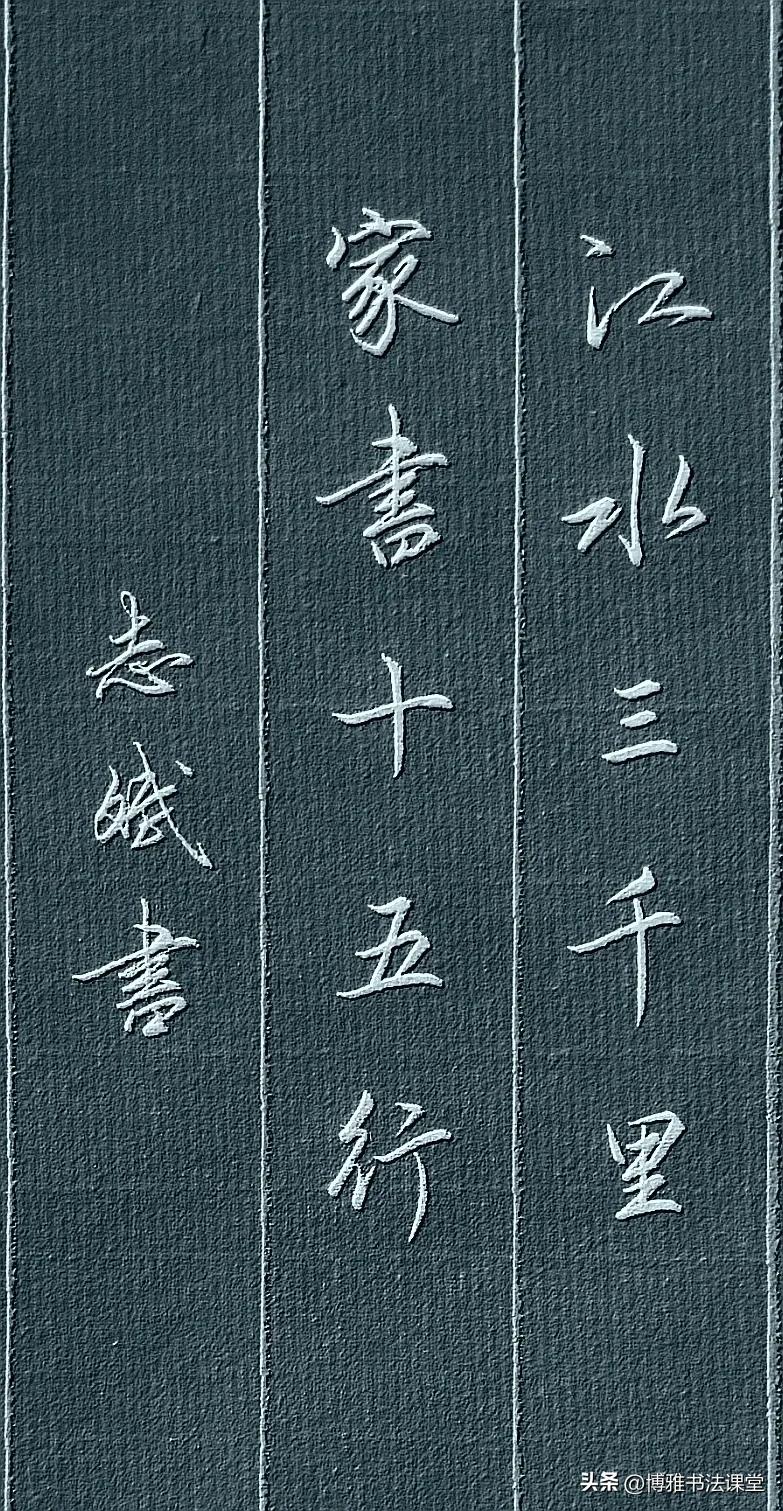 江水三千里
家書十五行
志斌書
头条 @博雅书法课堂